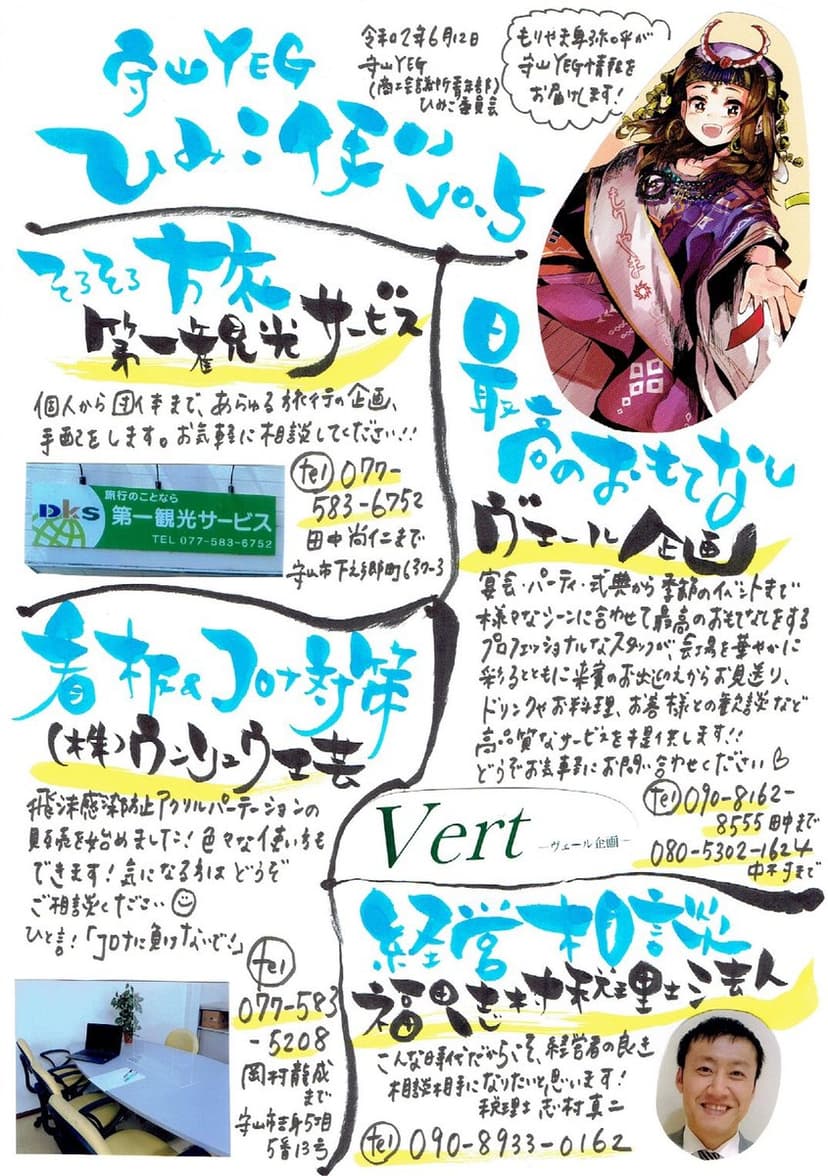 守山YEG
ひみこ便り vo.5
令和2年6月12日
守山YEG
(商工会議所青年部)
ひみこ委員会
もりやま卑弥呼が
守山YEG情報を
お届けします!
もりやま
そろそろ旅
第一観光サービス
個人から団体まで、あらゆる旅行の企画、
手配をします。お気軽に相談してください!!
旅行のことなら
DKS 第一観光サービス
TEL 077-583-6752
tel 077-
583-6752
田中尚仁まで
守山市下之郷町637-3
最高のおもてなし
ヴェール企画
宴会・パーティ・式典から季節のイベントまで
様々なシーンに合わせて最高のおもてなしをする
プロフェッショナルなスタッフが、会場を華やかに
彩るとともに来賓のお出迎えからお見送り、
ドリンクやお料理、お客様との歓談など
高品質なサービスを提供します!!
どうぞお気軽にお問い合わせください
tel 090-8162-
8555 田中まで
080-5302-1624
中村まで
Vert
―ヴェール企画―
看板&コロナ対策
(株)ウンリュウ工芸
飛沫感染防止アクリルパーテーションの
販売を始めました!色々な使い方も
できます!気になる方はどうぞ
ご相談ください
ひと言!「コロナに負けないで!」
tel
077-583
-5208
岡村龍成
まで
守山市吉身5丁目
5番13号
経営相談
福思志村税理士法人
こんな時代だからこそ、経営者の良き
相談相手になりたいと思います!
税理士 志村真二
tel 090-8933-0162